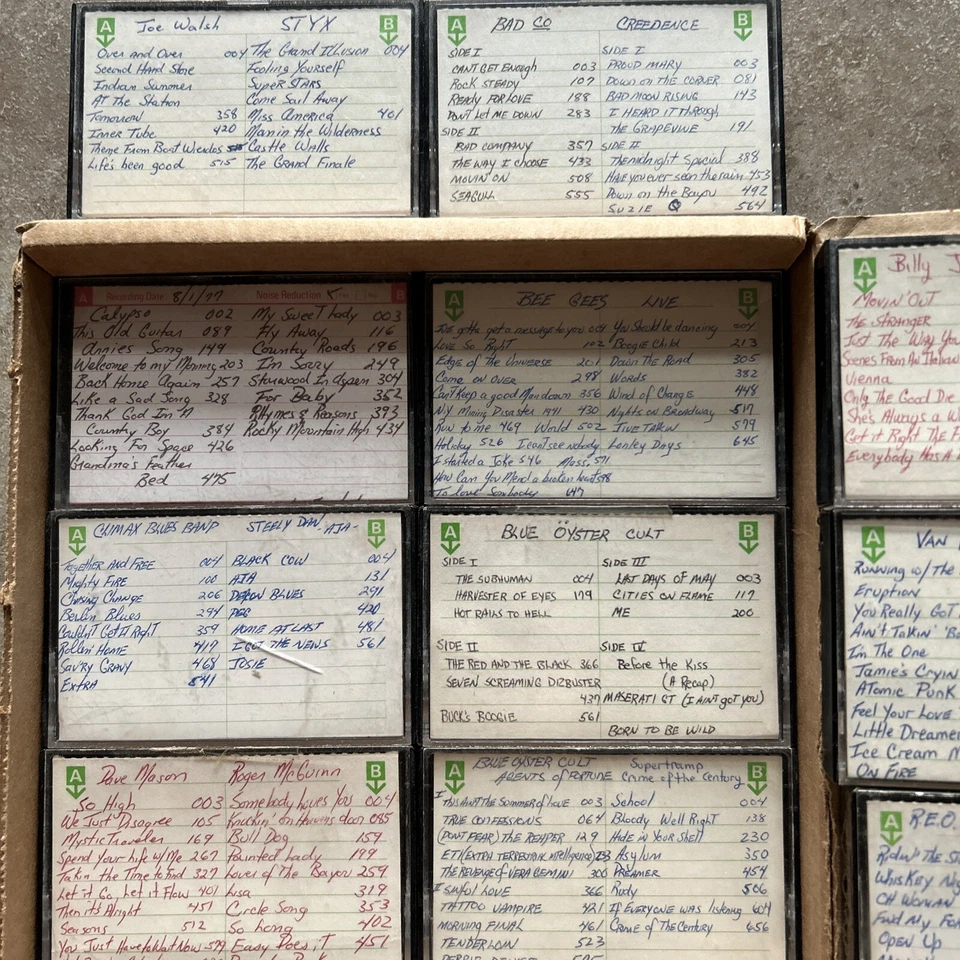 A Joe Walsh STYX B
Over and Over 004 The Grand Illusion 004
Second Hand Store Fooling Yourself
Indian Summer SupeR STARS
AT The Station Come Sail Away
Tomorrow 358 Miss America 401
Inner Tube 420 Man in the Wilderness
Theme From Boat Weirdos Castle Walls
Life's been good 515 The Grand Finale
A BAD CO CREEDENCE B
SIDE I SIDE I
CAN'T GET ENOUGH 003 PROUD MARY 003
ROCK STEADY 107 DOWN ON THE CORNER 081
READY FOR LOVE 188 BAD MOON RISING 143
DON'T LET ME DOWN 283 I HEARD IT through
SIDE II THE GRAPEVINE 191
BAD COMPANY 357 SIDE II
THE WAY I CHOOSE 433 The midnight Special 388
MOVIN' ON 508 HAVE you ever seen the rain 453
SEAGULL 555 Down on the Bayou 492
SUZIE Q 564
A Recording Date 8/1/77 Noise Reduction B
Calypso 002 My Sweet Lady 003
This Old Guitar 089 Fly Away 116
Annies Song 149 Country Roads 196
Welcome to my Morning 203 I'm Sorry 249
Back Home Again 257 Starwood In Aspen 304
Like a Sad Song 328 For Baby 352
Thank God Im A Rhymes & Reasons 393
Country Boy 384 Rocky Mountain High 434
Looking For Space 426
Grandma's Feather
Bed 475
A BEE GEES LIVE B
I've gotta get a message to you 004 You Should be dancing 004
Love So Right 102 Boogie Child 213
Edge of the Universe 201 Down The Road 305
Come on over 298 Words 382
Can't Keep a good Man down 356 Wind of Change 448
N.Y. Mining Disaster 1941 430 Nights on Broadway 517
Run to me 469 World 502 JIVE TALKIN 579
Holiday 526 I can't see nobody Lonley Days 645
I started a Joke 546 Mass. 571
How Can You Mend a broken heart 598
To love Somebody 647
A CLIMAX BLUES BAND STEELY DAN -AJA- B
Together AND FREE 004 BLACK COW 004
Mighty FIRE 100 AJA 131
Chasing Change 206 DEACON BLUES 291
Berlin Blues 294 PEG 420
Couldn't Get It Right 359 HOME AT LAST 481
Rollin Home 417 I GOT THE NEWS 561
Sav'ry Gravy 468 JOSIE
Extra 541
A BLUE ÖYSTER CULT B
SIDE I SIDE III
THE SUBHUMAN 004 LAST DAYS OF MAY 003
HARVESTER OF EYES 179 CITIES ON FLAME 117
HOT RAILS TO HELL ME 200
SIDE II SIDE IV
THE RED AND THE BLACK 366 Before the Kiss
SEVEN SCREAMING DIZBUSTER (A Recap)
437 MASERATI GT (I AIN'T GOT YOU)
BUCK'S BOOGIE 561
BORN TO BE WILD
A Dave Mason Roger McGuinn B
So High 003 Somebody loves You 004
We Just Disagree 105 Knockin' on Heavens door 085
Mystic Traveler 169 Bull Dog 159
Spend your Life w/Me 267 Painted Lady 199
Takin the Time to Find 327 Lover of The Bayou 259
Let it Go, Let it Flow 401 Lisa 319
Then it's Alright 451 Circle Song 353
Seasons 512 So Long 402
You Just Have to Wait Now 579 Easy Does iT 451
A BLUE OYSTER CULT Supertramp B
AGENTS OF FORTUNE Crime of the Century
I THIS AIN'T THE Summer of Love 003 School 004
TRUE CONFESSIONS 064 Bloody Well Right 138
(DON'T FEAR) THE REAPER 129 Hide in Your Shell 230
ETI (EXTRA TERRESTRIAL INTELLIGENCE) 233 Asylum 350
THE REVENGE OF VERA GEMINI 300 DREAMER 454
II SINFUL LOVE 366 Rudy 506
TATTOO VAMPIRE 421 If EVERYONE WAS listening 604
MORNING FINAL 461 CRIME OF The Century 656
TENDERLOIN 523
DEBBIE DENISE
A Billy
MOVIN' OUT
THE STRANGER
Just The Way You
Scenes From An Italian
Vienna
Only The Good Die
She's Always a
Get it Right The
Everybody Has A
A VAN
Running w/ The
Eruption
You Really Got
Ain't Talkin'
I'm The One
Jamie's Cryin
Atomic Punk
Feel Your Love
Little Dreamer
Ice Cream
ON FIRE
A R.E.O.
Ridin' The
Whiskey
OH WOMAN
Find My
OPEN UP